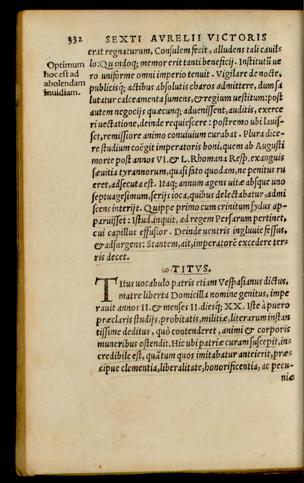 332 SEXTI AVRELII VICTORIS
Optimum
hoc est ad
abolendam
inuidiam.
erat regnaturum, Consulem fecit, alludens tali cauil-
lo: Quandoq; memor erit tanti beneficij. Institutũ ue
ro uniforme omni imperio tenuit. Vigilare de nocte,
publicisq; actibus absolutis charos admittere, dum sa
lutatur calceamenta sumens, & regium uestitum: post
autem negocijs quæcunq; aduenissent, auditis, exerce
ri uectatione, deinde requiescere: postremo ubi lauis-
set, remissiore animo conuiuium curabat. Plura dice-
re studium coëgit imperatoris boni, quem ab Augusti
morte post annos VI. & L. Rhomana Resp. exanguis
sæuitia tyrannorum, quasi fato quodam, ne penitus ru
eret, adsecuta est. Itaq; annum agens uitæ absque uno
septuagesimum, serijs ioca, quibus delectabatur, admi
scens interijt. Quippe primo cum crinitum sydus ap-
paruisset: Istud inquit, ad regem Persarum pertinet,
cui capillus effusior. Deinde uentris ingluuie fessus,
& adsurgens: Stantem, ait, imperatorẽ excedere ter-
ris decet.
TITVS.
Titus uocabulo patris etiam Vespasianus dictus,
matre liberta Domicilla nomine genitus, impe
rauit annos II. & menses II. diesq; XX. Iste à puero
præclaris studijs, probitatis, militiæ, literarum instan
tissime deditus, quò contenderet, animi & corporis
muneribus ostendit. Hic ubi patriæ curam suscepit, in-
credibile est, quãtum quos imitabatur anteierit, præ-
cipue clementia, liberalitate, honorificentia, ac pecu-
niæ